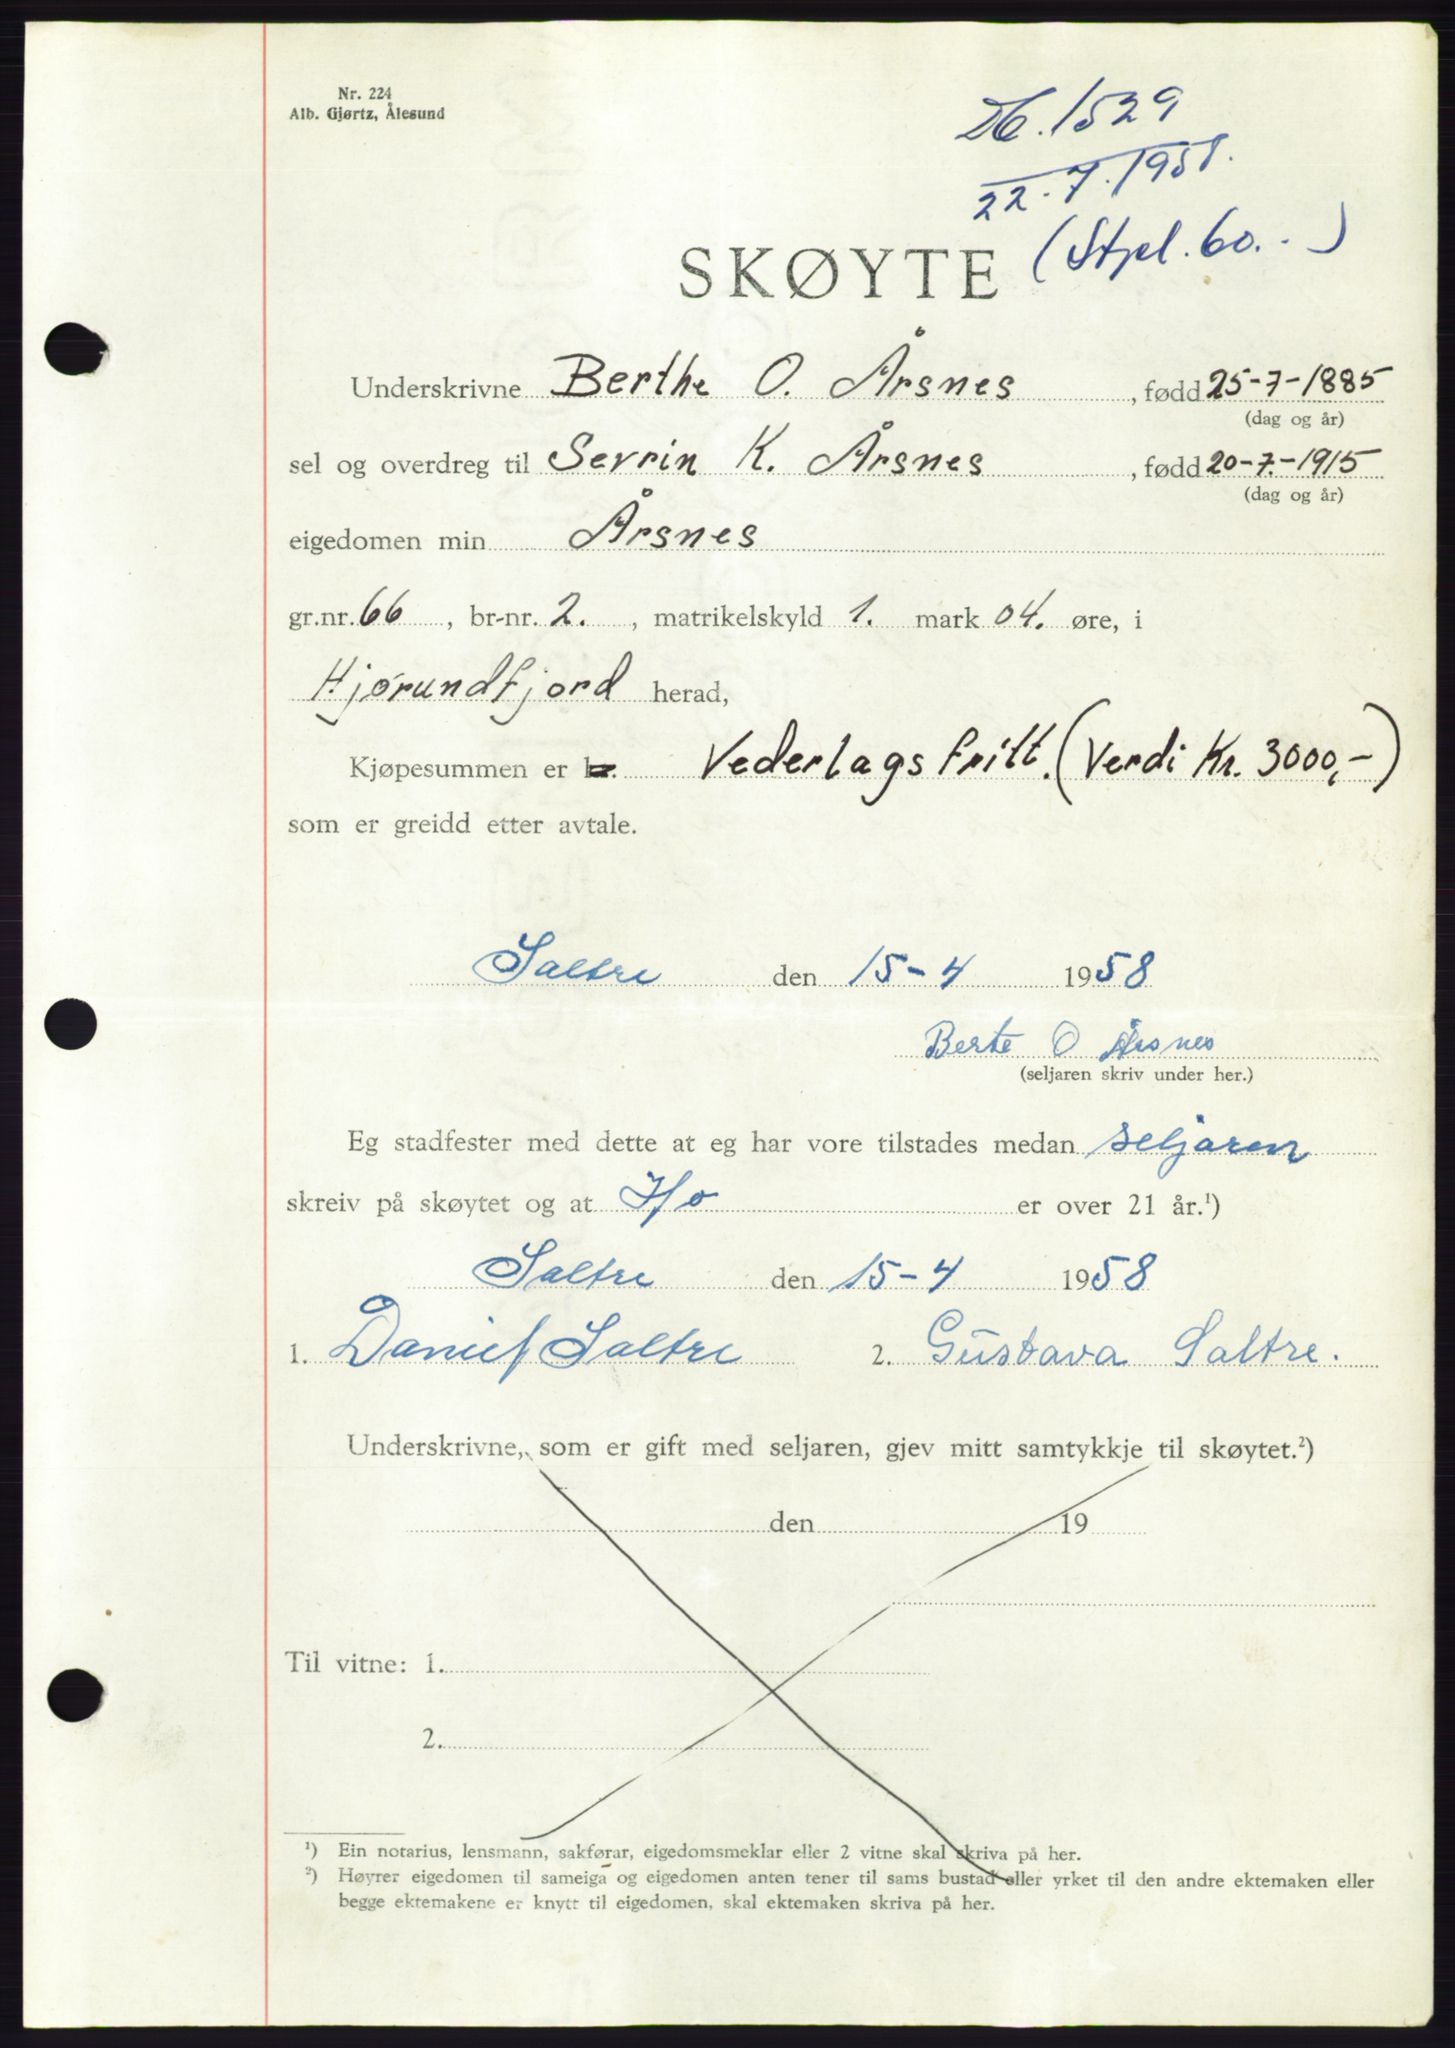 Nr. 224
Alb. Gjørtz, Ålesund
Db. 1529
22.7.1958.
(Stpl. 60.-)
SKØYTE
Underskrivne Berthe O. Årsnes, fødd 25-7-1885
(dag og år)
sel og overdreg til Sevrin K. Årsnes, fødd 20-7.-1915
(dag og år)
eigedomen min Årsnes
gr.nr. 66, br-nr. 2., matrikelskyld 1. mark 04. øre, i
Hjørundfjord herad,
Kjøpesummen er kr. Vederlagsfritt. (Verdi Kr. 3000,-)
som er greidd etter avtale.
Saltre den 15-4 1958
Berte O Årsnes
(seljaren skriv under her.)
Eg stadfester med dette at eg har vore tilstades medan seljaren
skreiv på skøytet og at Ho er over 21 år.¹)
Saltre den 15-4 1958
1. Daniel Saltre 2. Gustava Saltre.
Underskrivne, som er gift med seljaren, gjev mitt samtykkje til skøytet.²)
den 19
Til vitne: 1.
2.
¹) Ein notarius, lensmann, sakførar, eigedomsmeklar eller 2 vitne skal skriva på her.
²) Høyrer eigedomen til sameiga og eigedomen anten tener til sams bustad eller yrket til den andre ektemaken eller
begge ektemakene er knytt til eigedomen, skal ektemaken skriva på her.